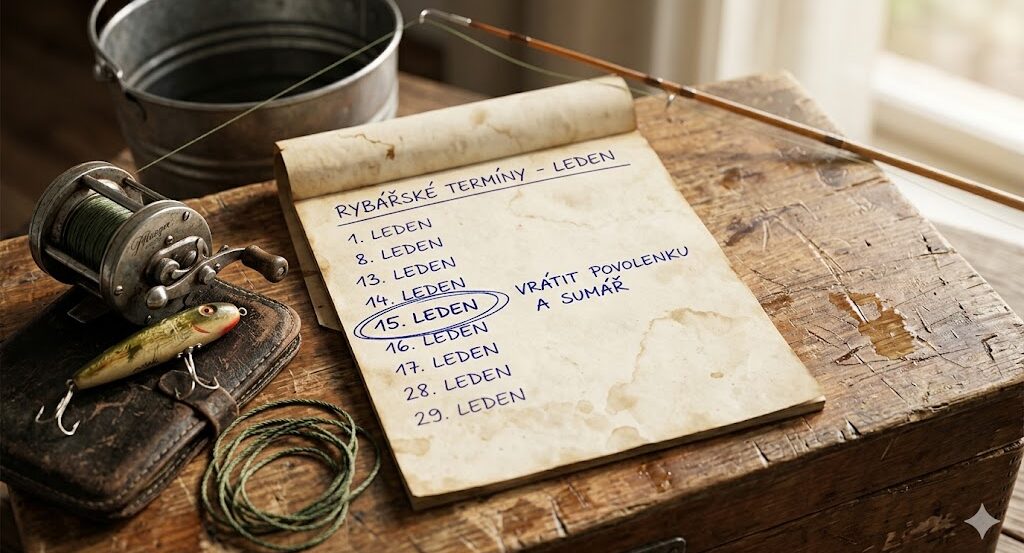 RYBÁŘSKÉ TERMÍNY - LEDEN
1. LEDEN
8. LEDEN
13. LEDEN
14. LEDEN
15. LEDEN
VRÁTIT POVOLENKU
A SUMÁŘ
16. LEDEN
17. LEDEN
28. LEDEN
29. LEDEN